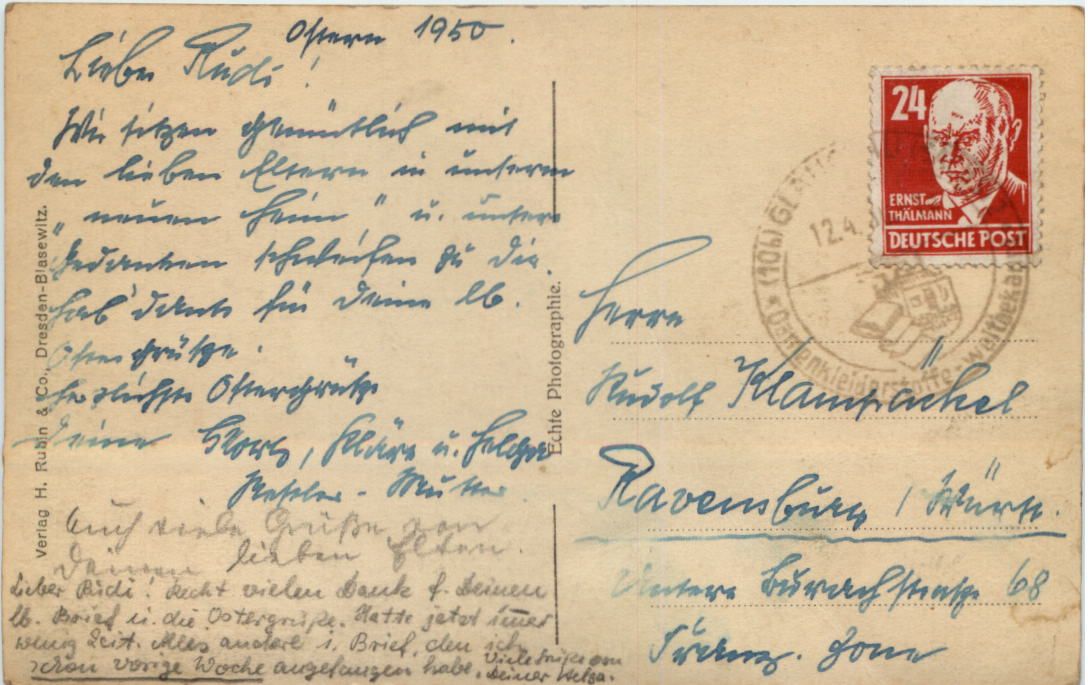 Ostern 1950.
Lieber Rudi!
Wir sitzen gemütlich mit
den lieben Eltern in unserem
"neuen Heim" u. unsere
Gedanken schweifen zu Dir.
Hab' Dank für Deine lb.
Ostergrüße.
Herzlichste Ostergrüße
Deine, Kläre u. Helga
- Mutter.
Auch viele Grüße von
Deinen lieben Eltern.
Lieber Rudi! Recht vielen Dank f. Deinen
lb. Brief u. die Ostergrüße. Hatte jetzt immer
wenig Zeit. Alles andere i. Brief, den ich
schon vorige Woche angefangen habe. Viele Grüße von
Deiner Helga.
Verlag H. Rubin & Co., Dresden-Blasewitz.
Echte Photographie.
24
ERNST
THÄLMANN
DEUTSCHE POST
(10b) GLAUCHAU
12.4.
Damenkleiderstoffe - Weltbekannt
Herrn
Rudolf
Ravensburg / Württ.
Untere Burachstraße 68
Franz. Zone